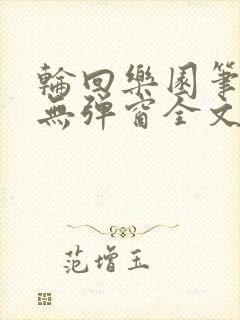 輪回樂園筆
無彈窗全文
范增玉